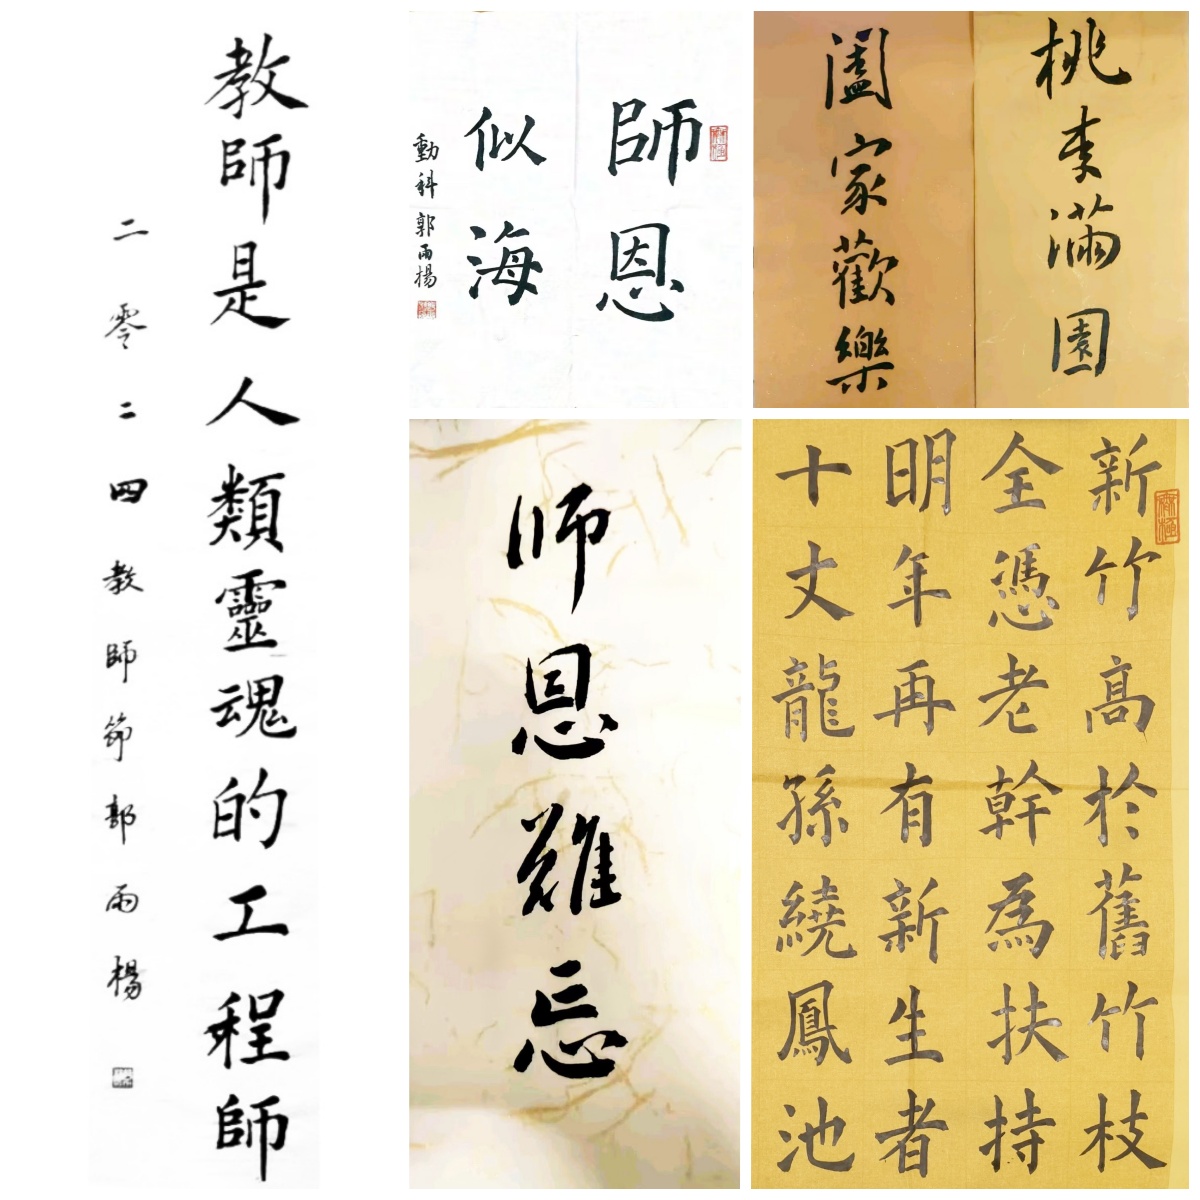 教師是人類靈魂的工程師
二零二四教師節郭雨楊
師恩
似海
動科郭雨揚
桃李滿園
闔家歡樂
师恩難忘
新竹高於舊竹枝
全憑老幹為扶持
明年再有新生者
十丈龍孫繞鳳池